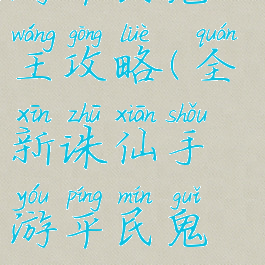 wáng gōng lüè quán
王攻略(全
xīn zhū xiān shǒu
新诛仙手
yóu píng mín guǐ
游平民鬼